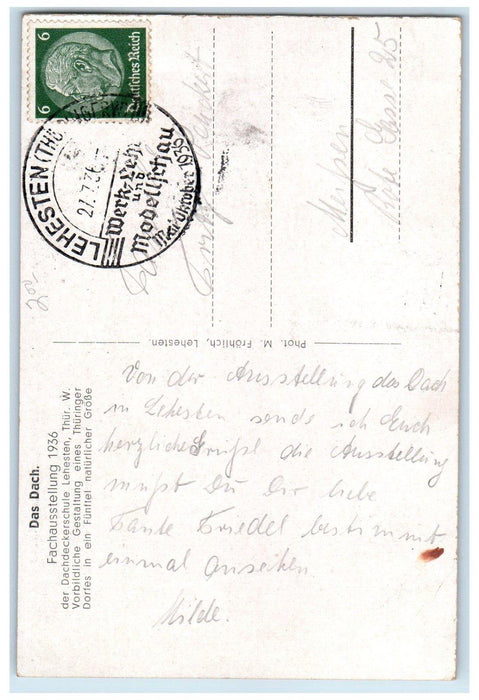 6 6
Deutsches Reich
LEHESTEN (THÜRINGERWALD)
27.7.36
Werk-Lehr
und
Modellschau
Mai-Oktober 1936
Fritz
Meißen
Rote Gasse 25
Das Dach.
Fachausstellung 1936
der Dachdeckerschule Lehesten, Thür. W.
Vorbildliche Gestaltung eines Thüringer
Dorfes in ein Fünftel natürlicher Größe
Phot. M. Fröhlich, Lehesten.
Von der Ausstellung das Dach
in Lehesten sende ich Euch
herzliche Grüße! die Ausstellung
mußt Du Dir liebe
Tante Friedel bestimmt
einmal ansehen
Milde.